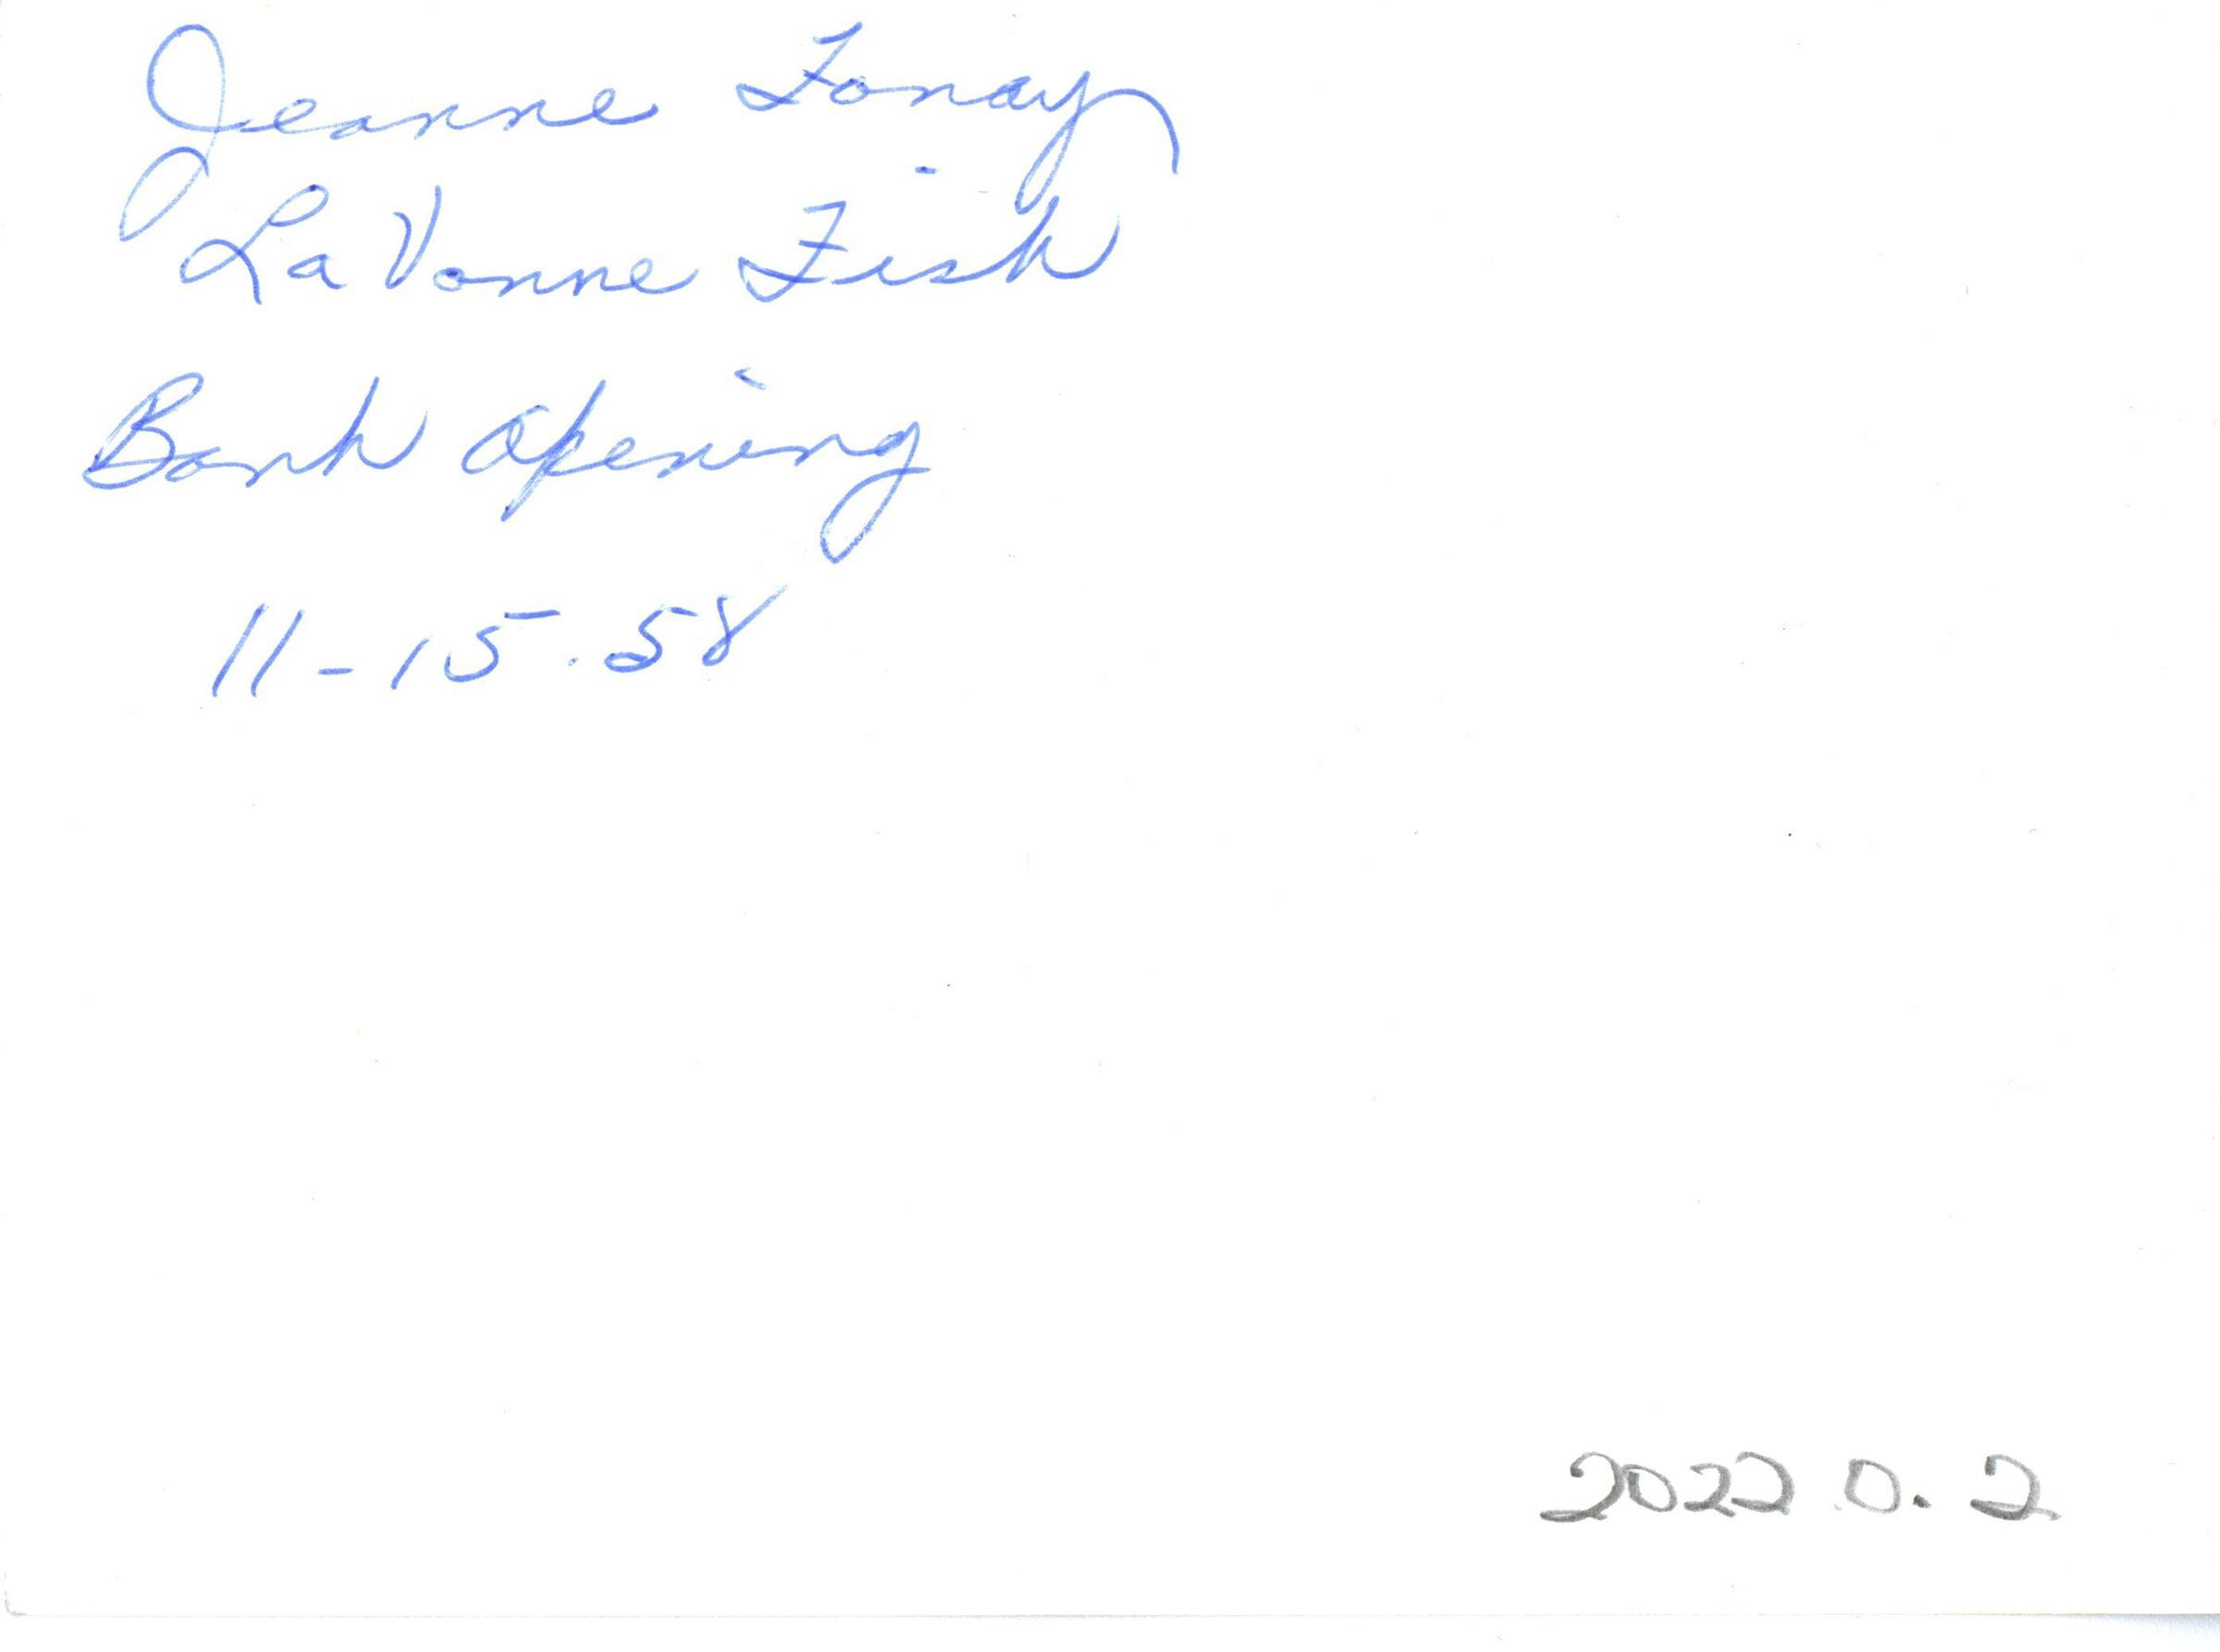 Jeanne Fonay
La Vonne Fish
Bank Opening
11-15.58
2022.0.2